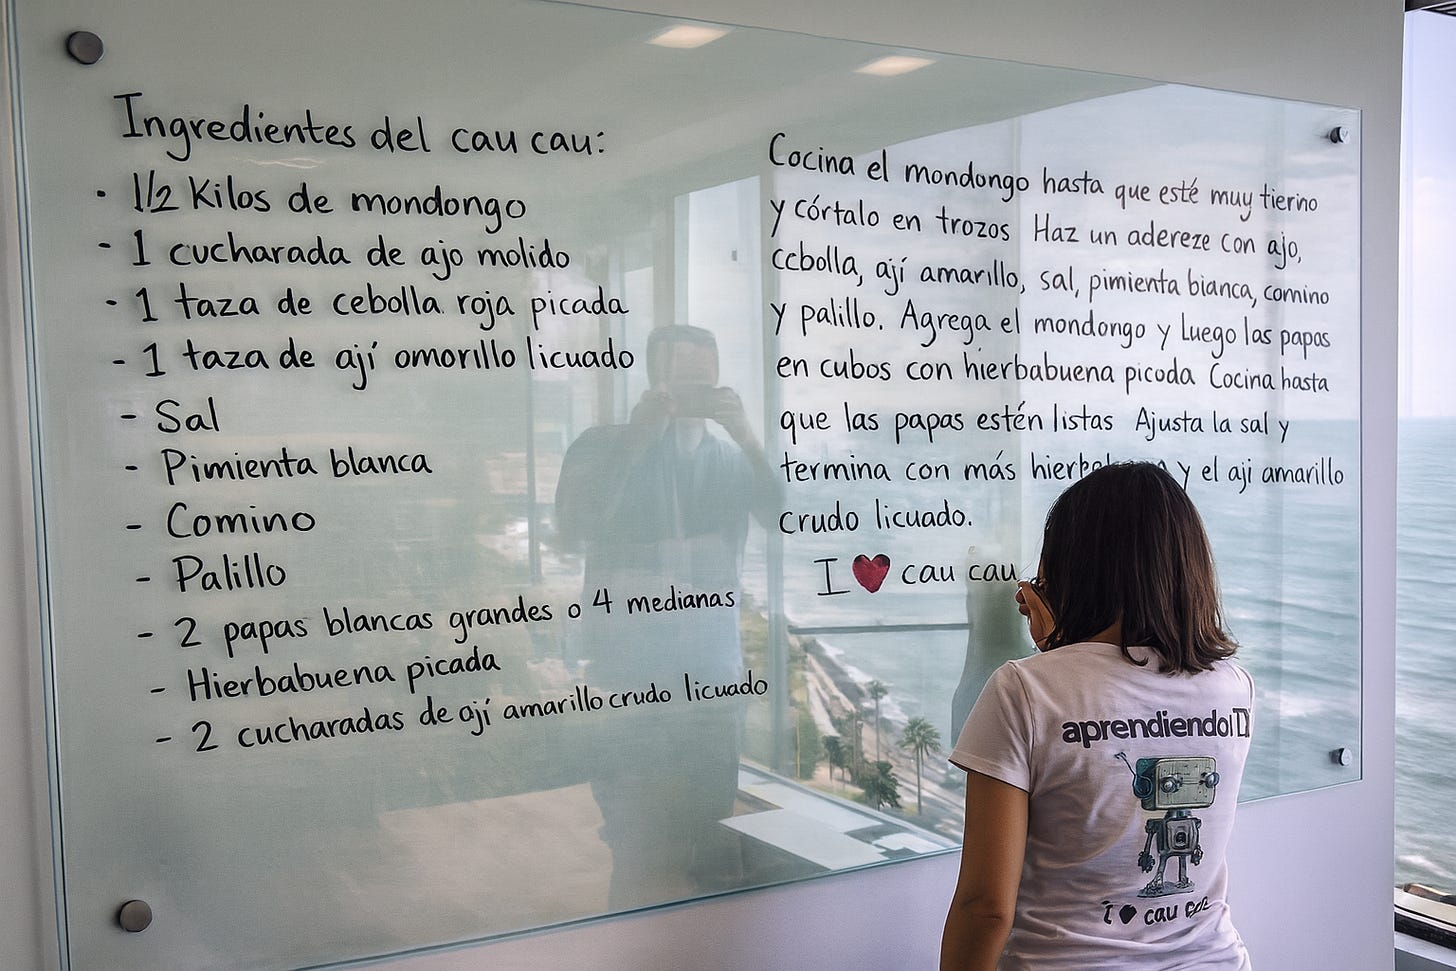 Ingredientes del cau cau:
· 1/2 Kilos de mondongo
- 1 cucharada de ajo molido
- 1 taza de cebolla roja picada
- 1 taza de ají omorillo licuado
- Sal
- Pimienta blanca
- Comino
- Palillo
- 2 papas blancas grandes o 4 medianas
- Hierbabuena picada
- 2 cucharadas de ojí amarillo crudo licuado
Cocina el mondongo hasta que esté muy tierno
y córtalo en trozos Haz un adereze con ajo,
ccbolla, ají amarillo, sal, pimienta bianca, comino
y palillo. Agrega el mondongo y Luego las papas
en cubos con hierbabuena picoda Cocina hasta
que las papas estén listas Ajusta la sal y
termina con más y el aji amarillo
crudo licuado.
I ❤ cau cau
aprendiendo
I ♥ cau